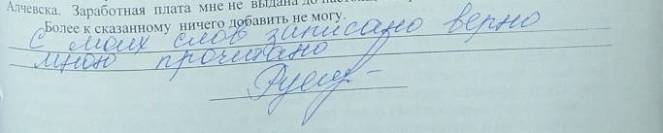 Алчевска. Заработная плата мне не выдана до
Более к сказанному ничего добавить не могу.
С моих слов записано верно
мною прочитано